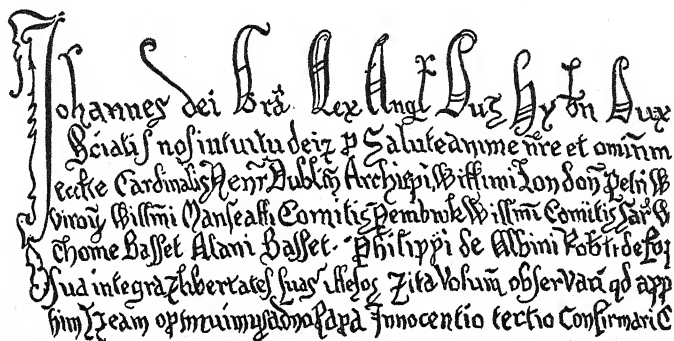 Johannes dei Grã Rex Angł Hybn Dux
Sciatis nos intuitu dei z p Salute anime nre et
eccłe Cardinalis Henr Dublin Archiepi Willimi London Petri W
Willmi Comitis Pembrok Willmi Comitis Sar W
Thome Basset Alani Basset. Philippi de Albini Robti de
Sua integra z libertates suas illesas z ita Volum observari qd app
z eam optinuimus a dno Papa Innocentio tertio Confirmari C